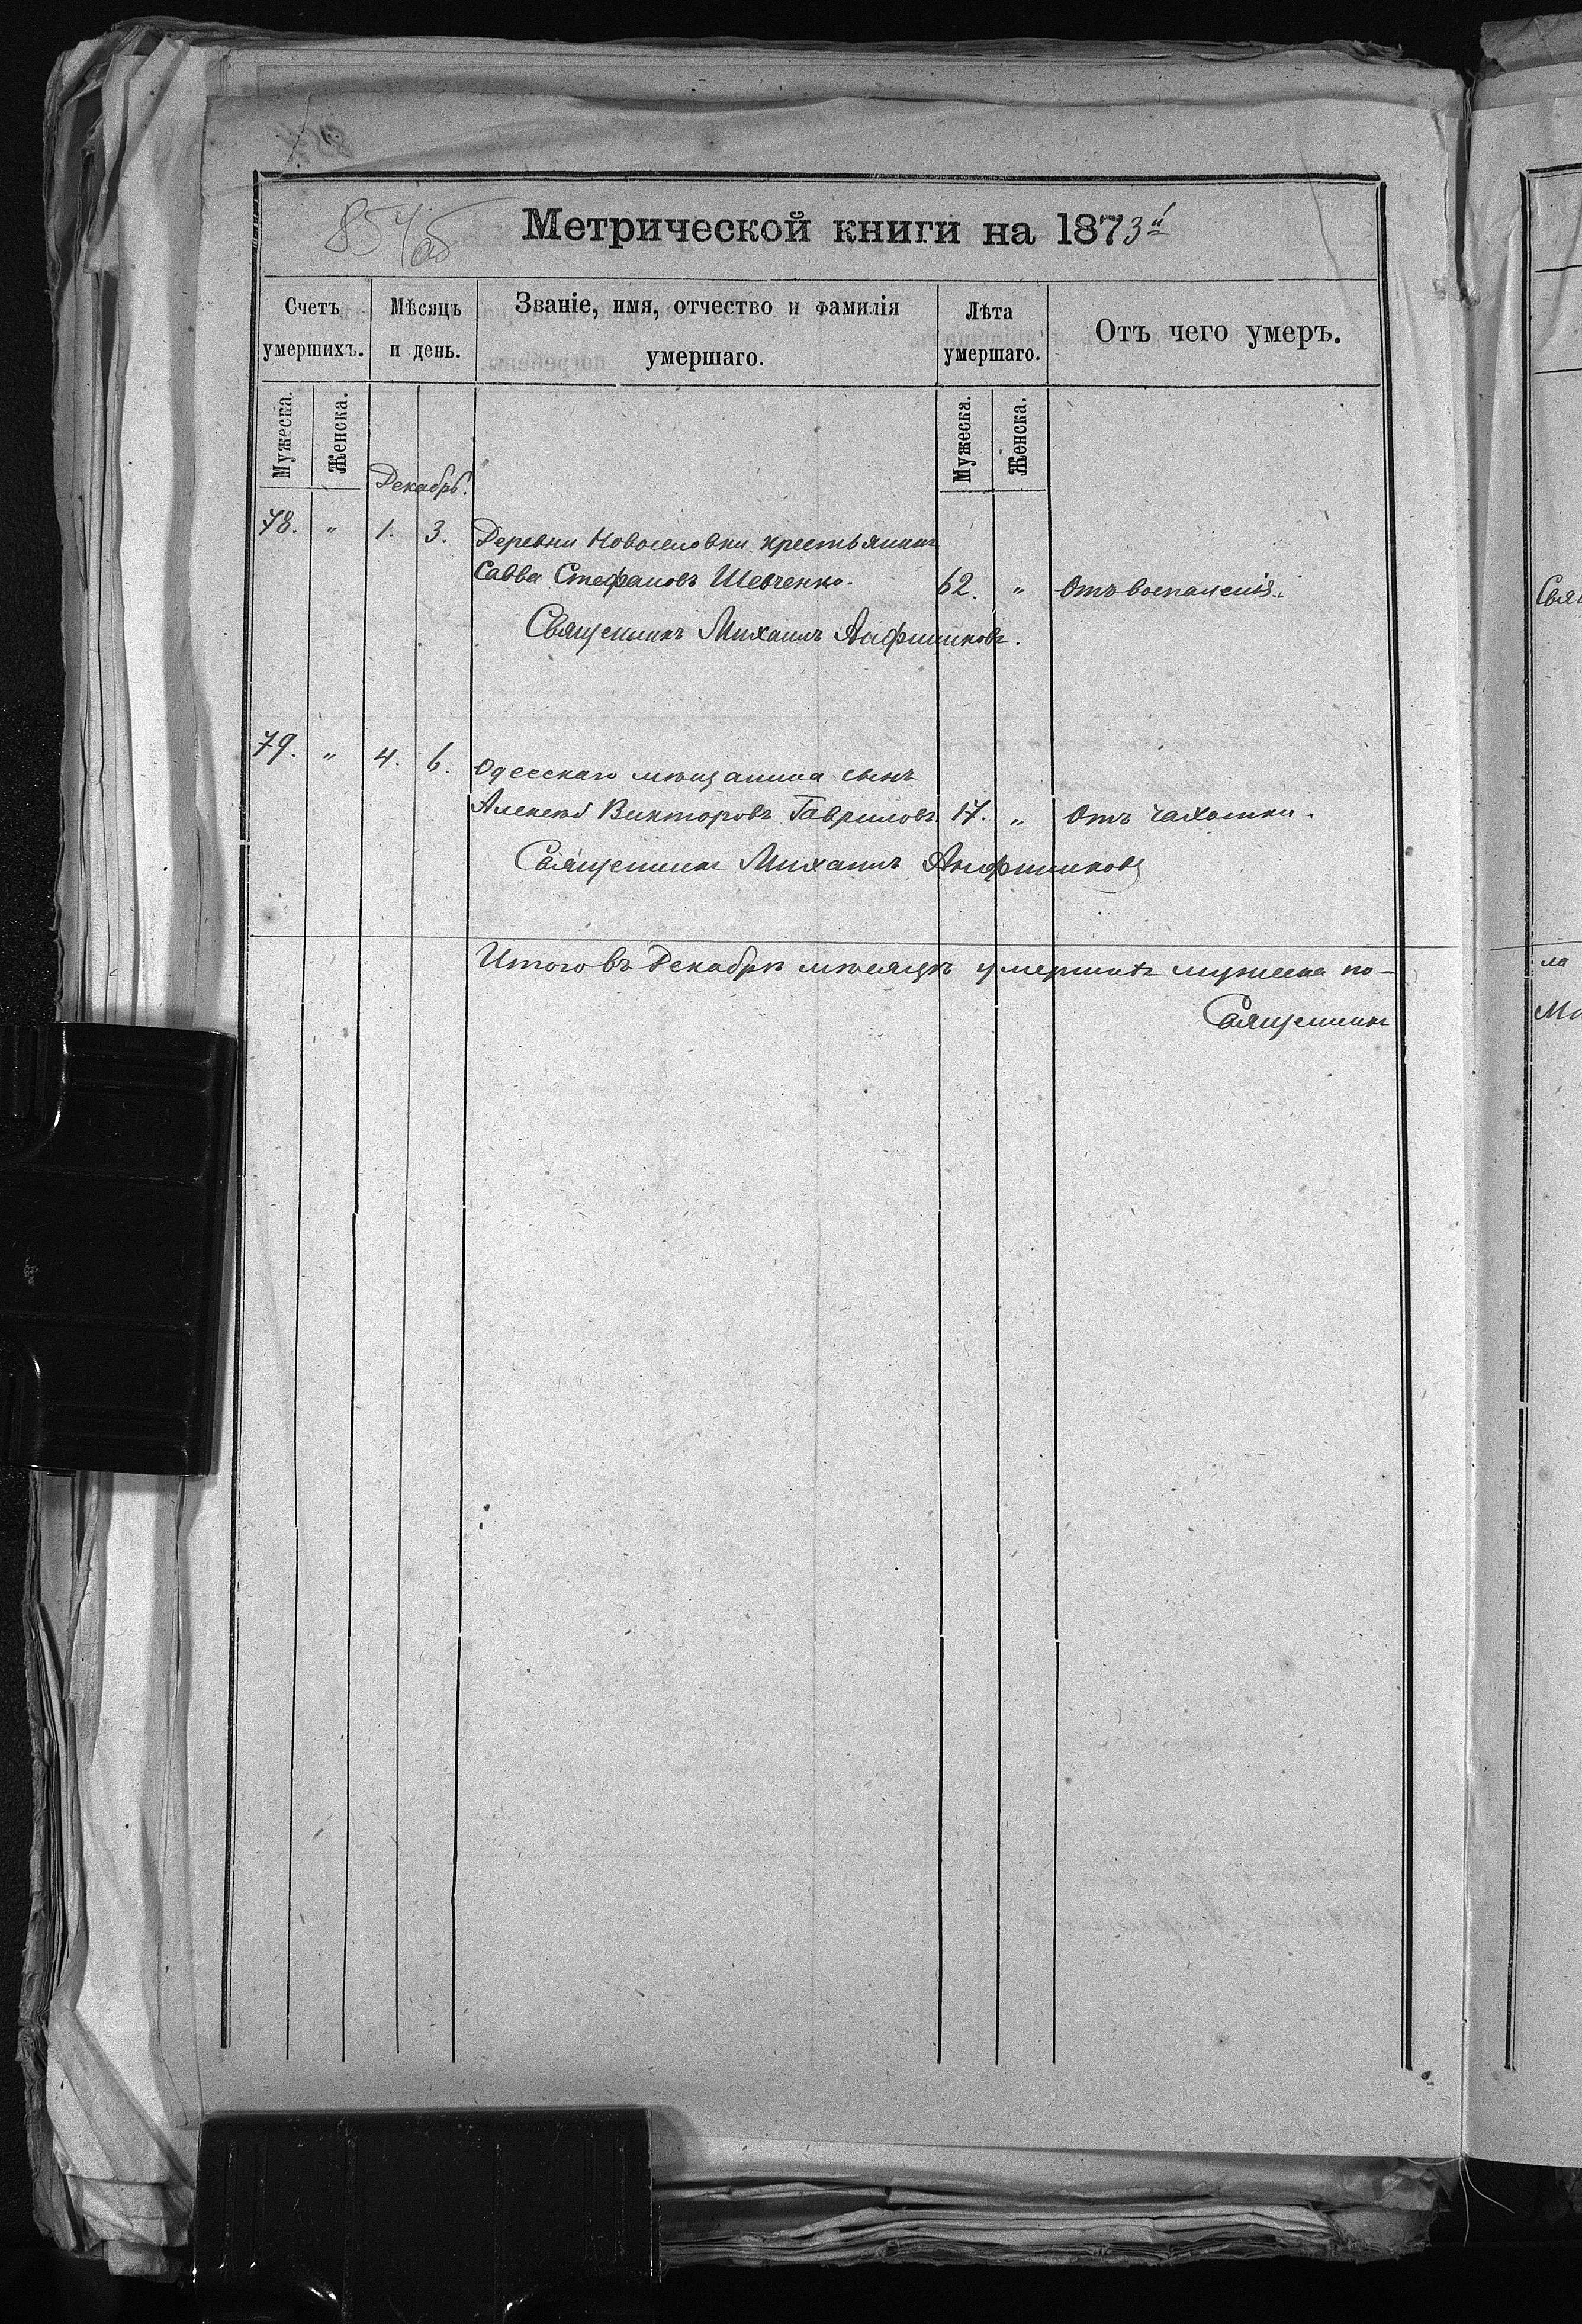 854об
Метрической книги на 1873й
Счетъ умершихъ.
Мѣсяцъ и день.
Званіе, имя, отчество и фамилія умершаго.
Лѣта умершаго.
Отъ чего умеръ.
Мужеска.
Женска.
Мужеска.
Женска.
Декабрь.
78. " 1. 3. Деревни Новоселовки крестьянинъ
Савва Стефановъ Шевченко. 62. " Отъ воспаленія.
Священникъ Михаилъ
79. " 4. 6. Одесскаго мѣщанина сынъ
Алексѣй Викторовъ Гавриловъ. 17. " Отъ чахотки.
Священникъ Михаилъ
Итого въ Декабрѣ мѣсяцѣ умершихъ мужеска по-
Священникъ